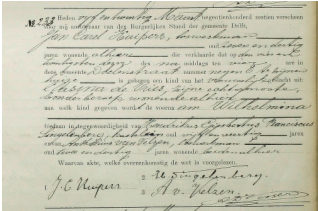 No 238
Heden vijf en twintig Maart negentienhonderd zestien verscheen
voor mij ambtenaar van den Burgerlijken Stand der gemeente Delft,
Jan Carel Kuipers,
oud een en dertig
jaren, wonende alhier die verklaarde dat op den vier en
twintigsten dezer des na middags te vier ure in
deze gemeente, straat nummer negen
is geboren een kind van het vrouwelijk geslacht uit
Gesina de Vries, zijne echtgenoote,
zonder beroep, wonende alhier
aan welk kind gegeven wordt de voornaam Wilhelmina
Gedaan in tegenwoordigheid van Hendrikus Egbertus Franciscus
Singelenberg, oud vijf en veertig jaren
van Velzen,
oud twee en dertig jaren, wonende beiden alhier
Waarvan akte, welke overeenkomstig de wet is voorgelezen.
J. C. Kuipers
Singelenberg.
A. v. Velzen.